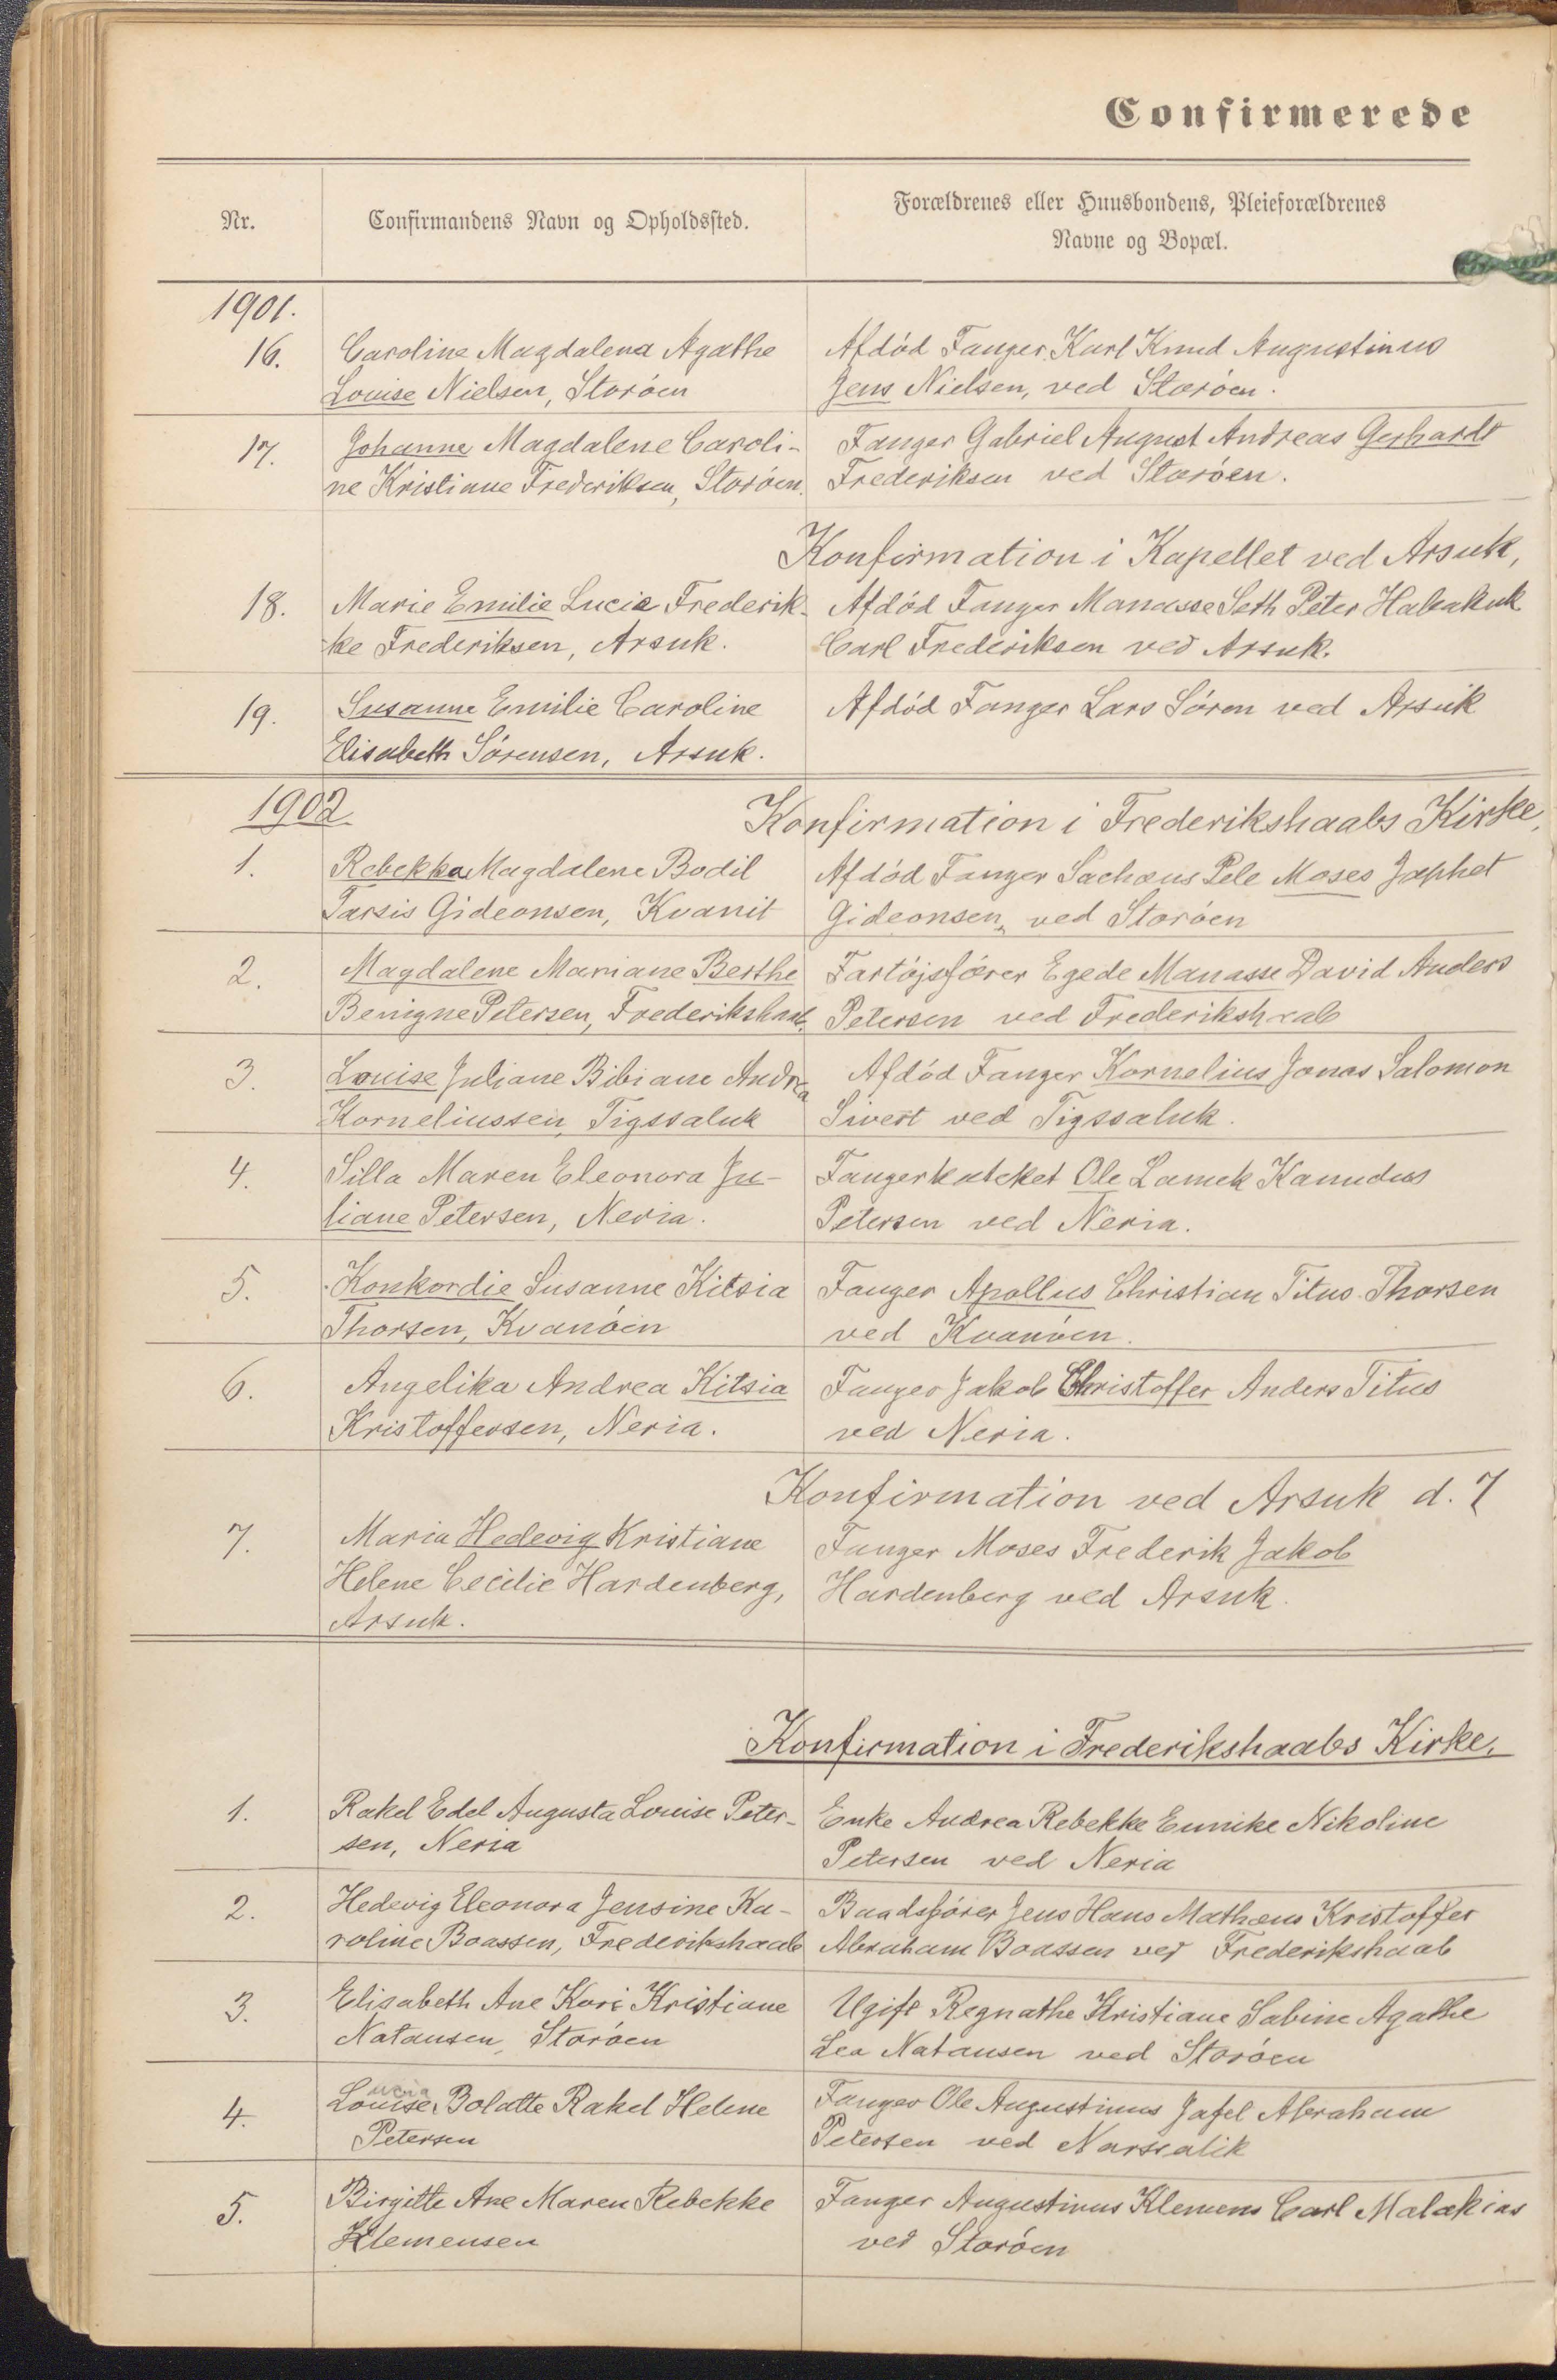 Confirmerede
Nr.
Confirmandens Navn og Opholdssted.
Forældrenes eller Huusbondens, Pleieforældrenes
Navne og Bopæl.
1901.
16.
Caroline Magdalena Agathe
Louise Nielsen, Storöen
Afdöd Fanger Karl Knud Augustinus
Jens Nielsen, ved Storöen.
17.
Johanne Magdalene Caroli-
ne Kristiane Frederiksen, Storöen.
Fanger Gabriel August Andreas Gerhardt
Frederiksen ved Storöen.
Konfirmation i Kapellet ved Arsuk,
18.
Marie Emilie Lucia Frederik-
ke Frederiksen, Arsuk.
Afdöd Fanger Manasse Seth Peter Habakuk
Carl Frederiksen ved Arsuk.
19.
Susanne Emilie Caroline
Elisabeth Sörensen, Arsuk.
Afdöd Fanger Lars Sören ved Arsuk
1902
Konfirmation i Frederikshaabs Kirke,
1.
Rebekka Magdalene Bodil
Tarsis Gideonsen, Kvanit
Afdöd Fanger Sachæus Pele Moses Japhet
Gideonsen, ved Storöen
2.
Magdalene Mariane Berthe
Benigne Petersen, Frederikshaab.
Fartöjsförer Egede Manasse David Anders
Petersen ved Frederikshaab
3.
Louise Juliane Bibiane Andrea
Korneliussen, Tigssaluk
Afdöd Fanger Kornelius Jonas Salomon
Sivert ved Tigssaluk.
4.
Silla Maren Eleonora Ju-
liane Petersen, Neria.
Fangerkateket Ole Lamek Kanudus
Petersen ved Neria.
5.
Konkordie Susanne Kitsia
Thorsen, Kvanöen
Fanger Apollus Christian Titus Thorsen
ved Kvanöen.
6.
Angelika Andrea Kitsia
Kristoffersen, Neria.
Fanger Jakob Christoffer Anders Titus
ved Neria.
Konfirmation ved Arsuk d. 7
7.
Maria Hedevig Kristiane
Helene Cecilie Hardenberg,
Arsuk.
Fanger Moses Frederik Jakob
Hardenberg ved Arsuk.
Konfirmation i Frederikshaabs Kirke.
1.
Rakel Edel Augusta Louise Peter-
sen, Neria
Enke Andrea Rebekke Eunike Nikoline
Petersen ved Neria
2.
Hedevig Eleonora Jensine Ka-
roline Boassen, Frederikshaab
Baadsförer Jens Hans Mathæus Kristoffer
Abraham Boassen ved Frederikshaab
3.
Elisabeth Ane Kari Kristiane
Natansen, Storöen
Ugift Regnathe Kristiane Sabine Agathe
Lea Natansen ved Storöen
4.
Louise Bolatte Rakel Helene
Petersen
Fanger Ole Augustinus Jafet Abraham
Petersen ved Narssalik
5.
Birgitte Ane Maren Rebekke
Klemensen
Fanger Augustinus Klemens Carl Malakias
ved Storöen